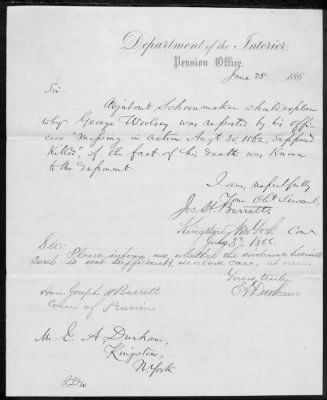 Department of the Interior,
Pension Office,
June 28 186
Sir.
Adjutant Schoonmaker should explain
why George Woolsey was reported by his offi-
cers "Missing in action Augt 30, 1862, supposed
killed", if the fact of his death was known
to the deponent
I am, respectfully
Your Obt Servant,
Jos. H. Barrett
Com
Kingston New York
July 3d 1866.
Sir Please inform me whether the evidence herewith
sent is not sufficient, in above case,
Yours truly,
E A Durham
Hon Joseph H Barrett
Com of Pensions
Mr. E. A. Durham,
Kingston,
N. York